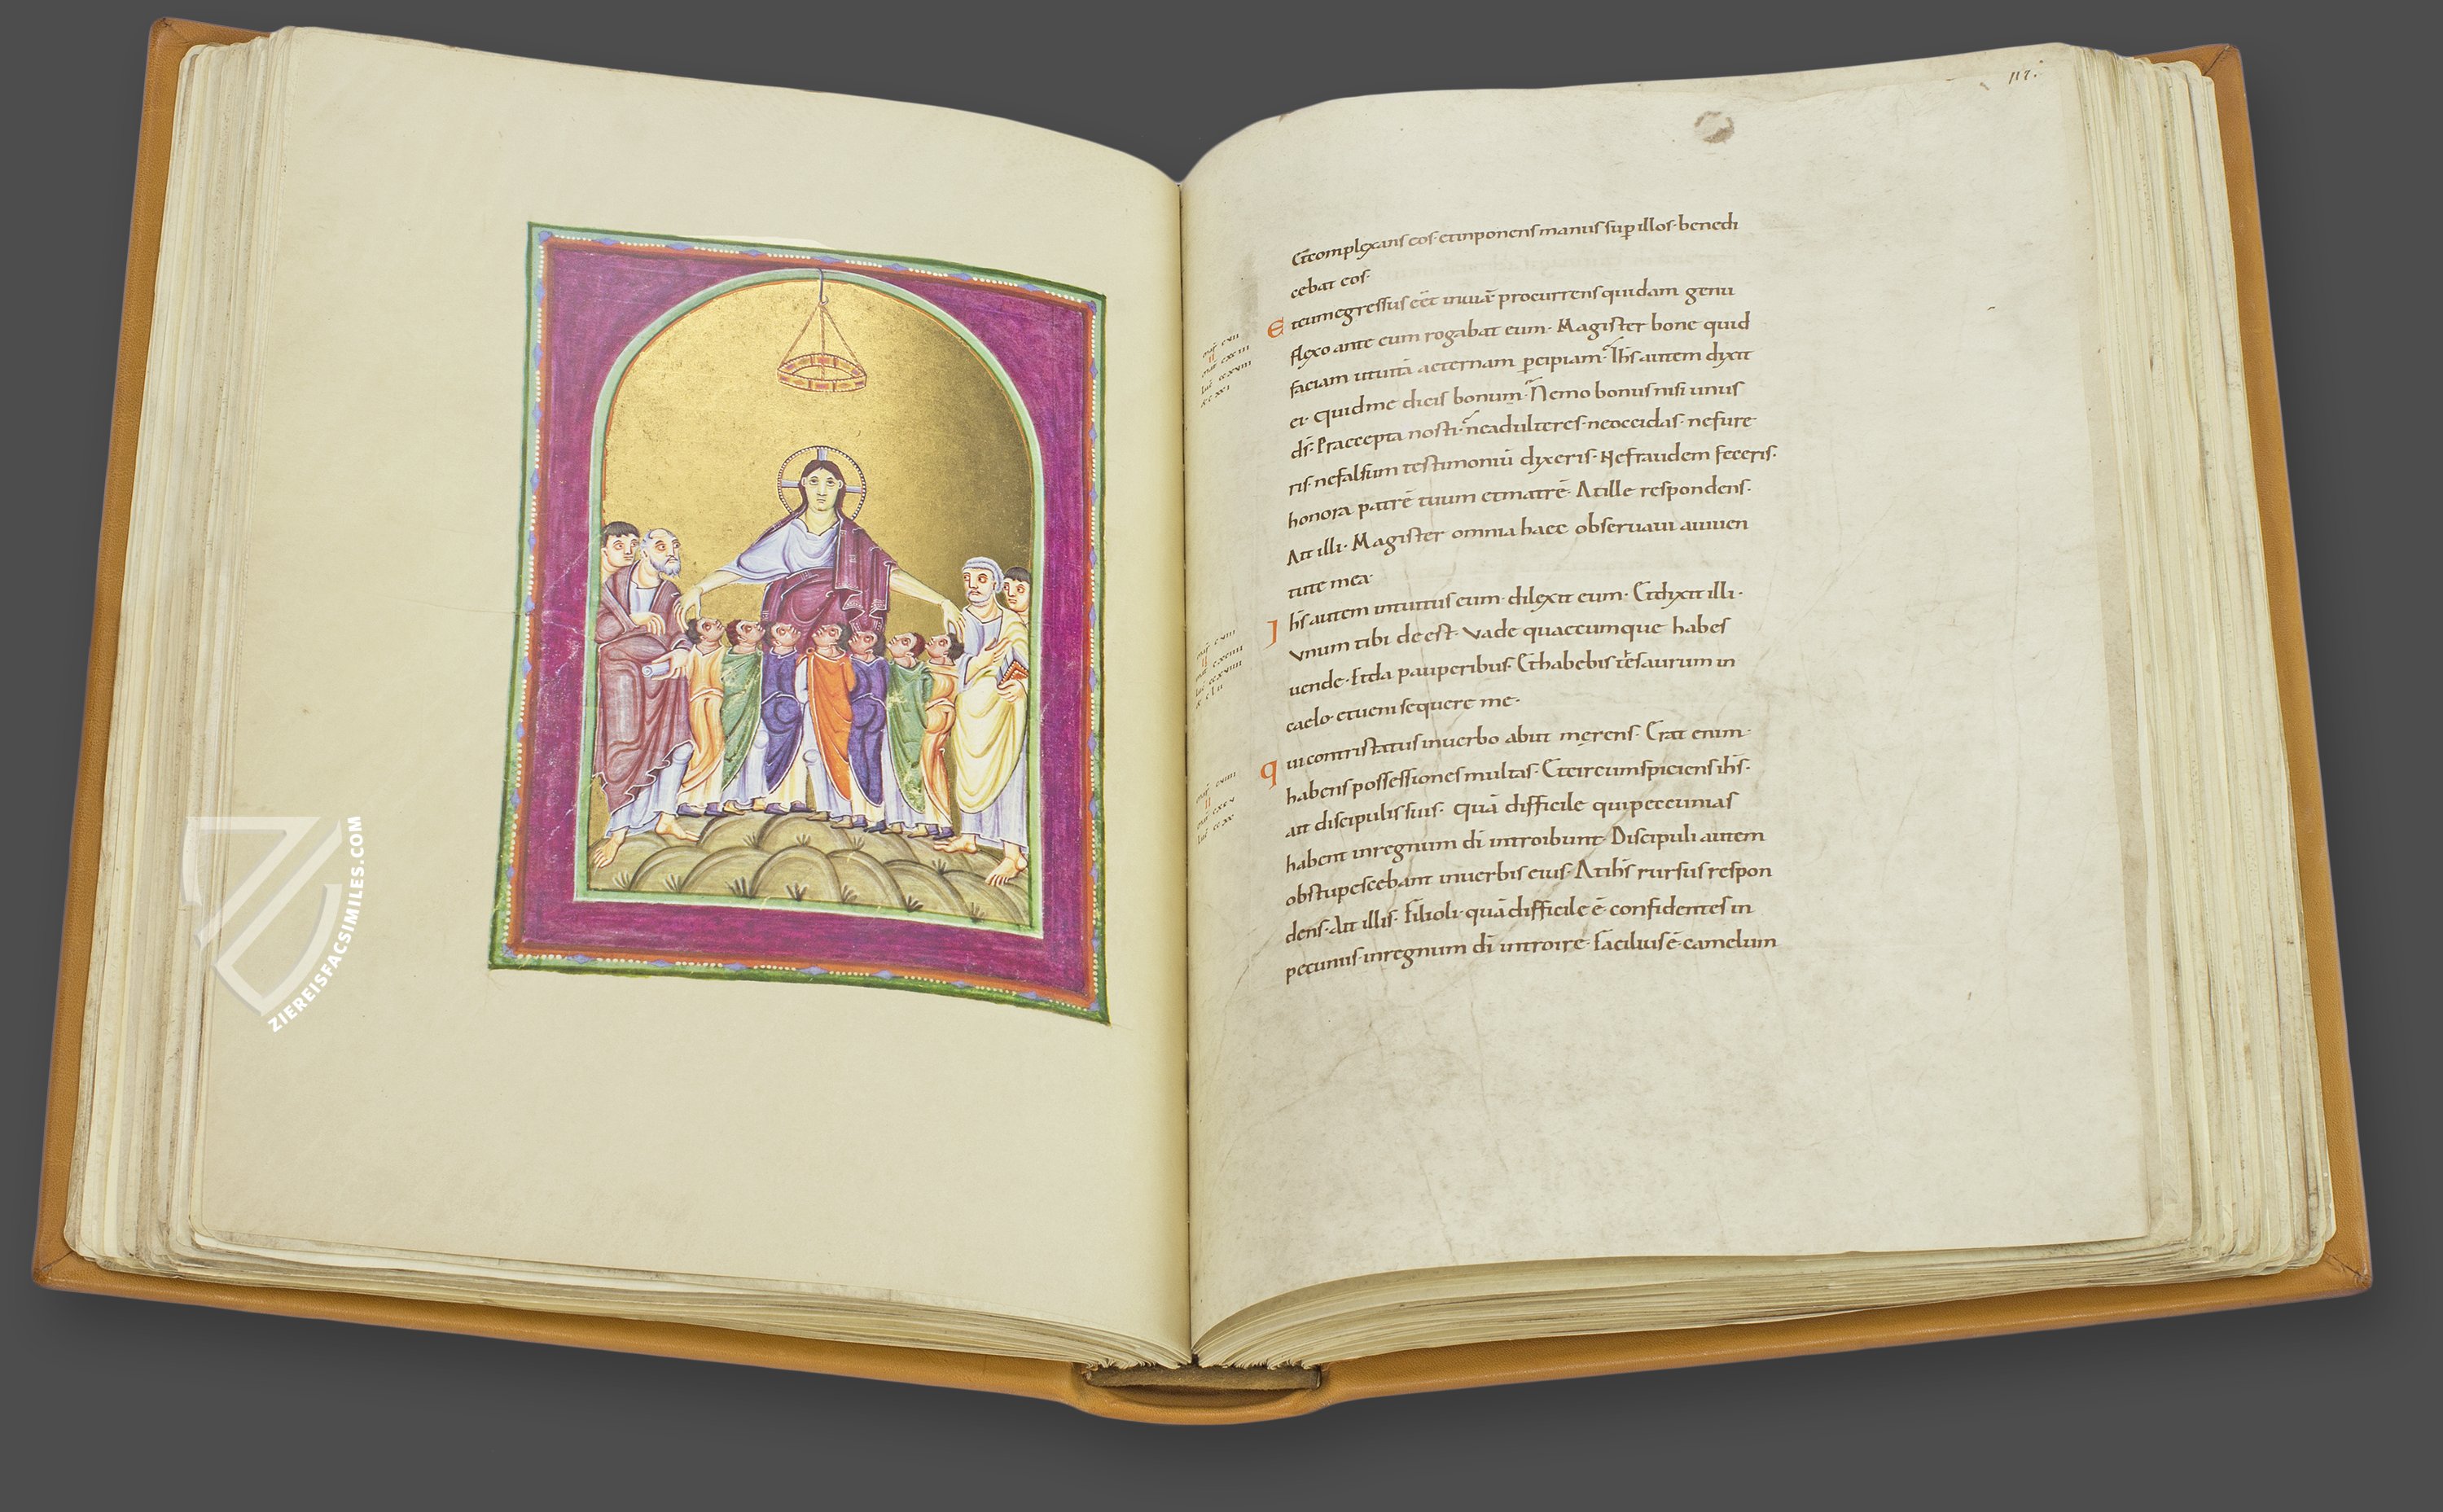 ZIEREISFACSIMILES.COM
117.
Et complexans eos· et inponens manus sup illos· benedi
cebat eos·
Et cum egressus eēt in uiā procurrens quidam genu
flexo ante eum rogabat eum· Magister bone quid
faciam ut uitā aeternam pcipiam· Ihs autem dixit
ei· Quid me dicis bonum· Nemo bonus nisi unus
ds· Praecepta nosti· ne adulteres· ne occidas· ne fure
ris· ne falsum testimoniū dixeris· Ne fraudem feceris·
honora patrē tuum et matrē· At ille respondens·
Ait illi· Magister omnia haec obseruaui a iuuen
tute mea·
Ihs autem intuitus eum· dilexit eum· Et dixit illi·
Vnum tibi deest· Vade quaecumque habes
uende· Et da pauperibus· Et habebis tesaurum in
caelo· et ueni sequere me·
Qui contristatus in uerbo abiit merens· Erat enim·
habens possessiones multas· Et circumspiciens ihs·
ait discipulis suis· Quā difficile qui peccunias
habent in regnum di introibunt· Discipuli autem
obstupescebant in uerbis eius· At ihs rursus respon
dens· Ait illis· Filioli· quā difficile ē· confidentes in
pecuniis· in regnum di introire· Facilius ē· camelum